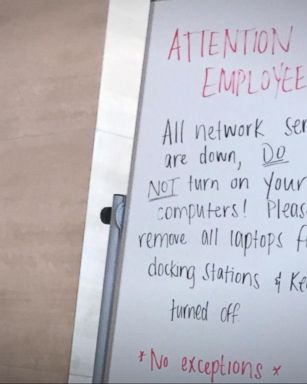 ATTENTION
EMPLOYEE
All network ser
are down, DO
NOT turn on your
computers! Pleas
remove all laptops f
docking stations & Ke
turned off.
*No exceptions*